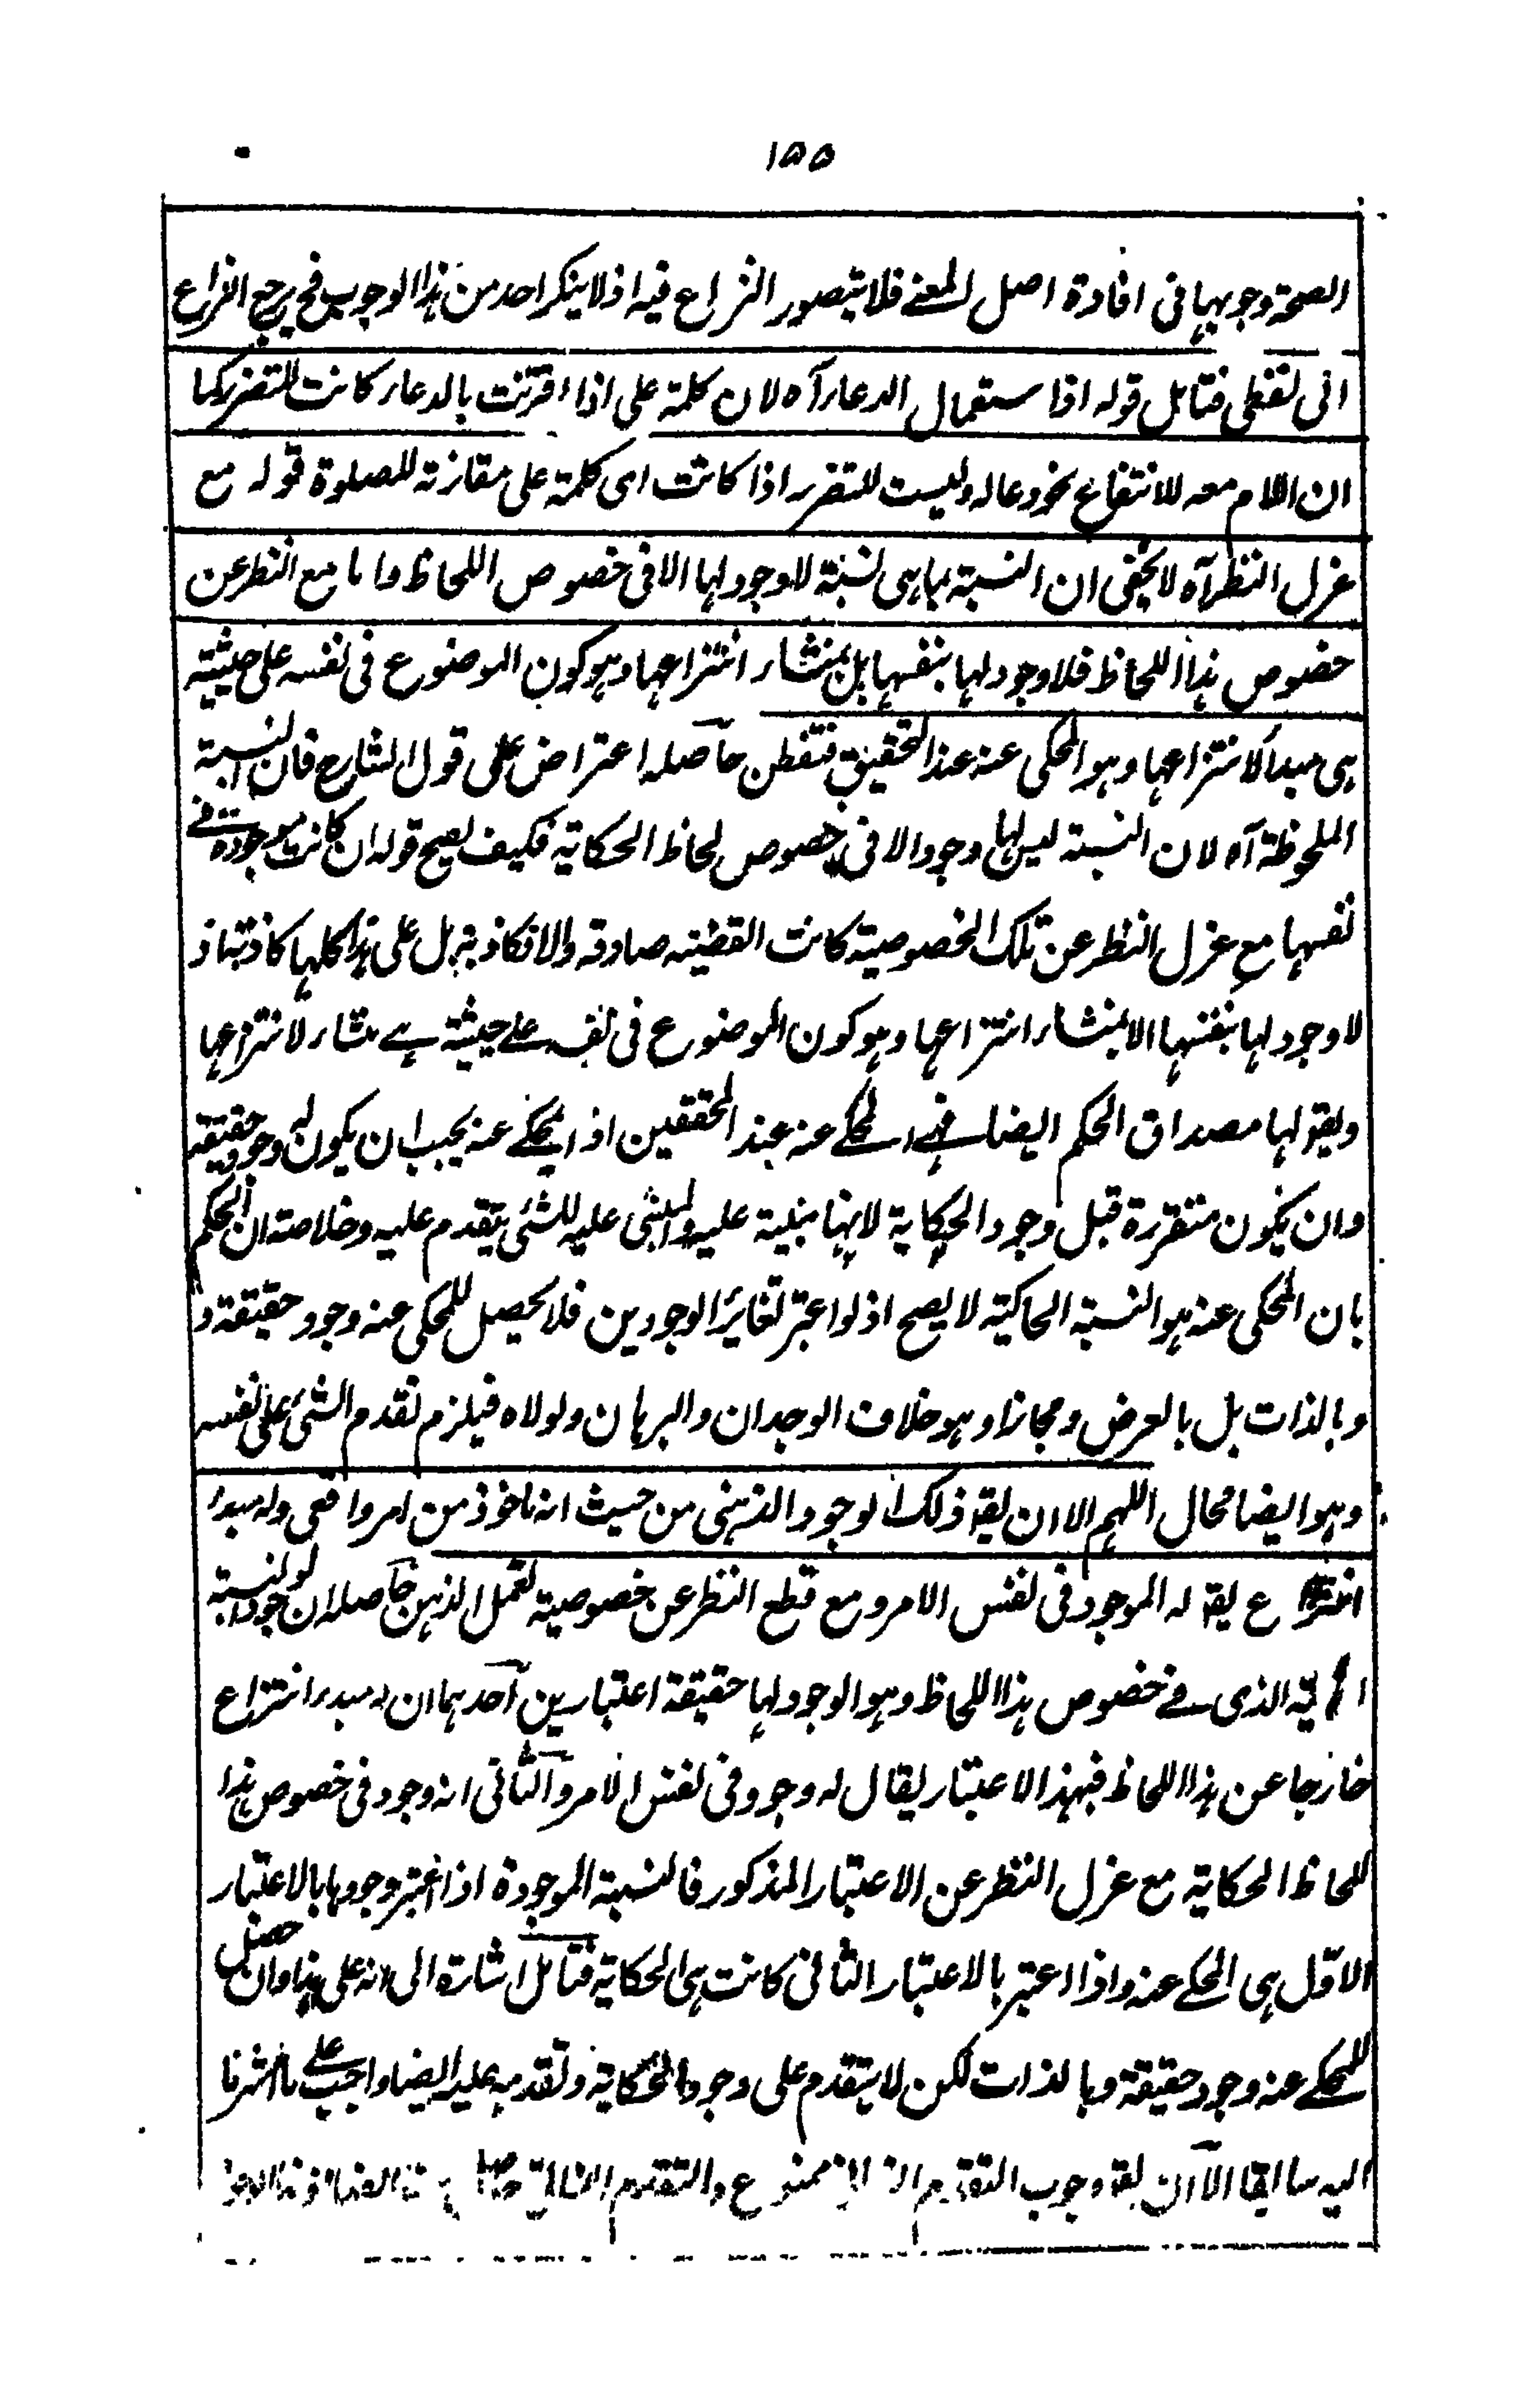 ١٥٥
الصحة وجوبها فى افادة اصل المعنے فلا يتصور النزاع فيه اذ لا ينكر احد من هذا الوجوب فح يرجع النزاع
الى لفظى فتامل قوله اذا ستعمال الدعاء آه لان كلمة على اذا اقترنت بالدعاء كانت للتضرر كما
ان اللام معه للانتفاع نحو دعا له وليست للتضرر اذا كانت اى كلمة على مقارنة للصلوة قوله مع
عزل النظر آه لا يخفى ان النسبة بما هى نسبة لا وجود لها الا فى خصوص اللحاظ واما مع النظر عن
خصوص هذا اللحاظ فلا وجود لها بنفسها بل بمنشاء انتزاعها وهو كون الموضوع فى نفسه على حيثية
هى مبدأ لانتزاعها وهو المحكى عنه عند التحقيق فتفطن حاصله اعتراض على قول الشارح فان النسبة
الملحوظة آه لان النسبة ليس لها وجود الا فى خصوص لحاظ الحكاية فكيف يصح قوله ان كانت موجودة فے
نفسها مع عزل النظر عن تلك الخصوصية كانت القضية صادقة والا فكاذبة بل على هذا كلها كاذبة اذ
لا وجود لها بنفسها الا بمنشاء انتزاعها وهو كون الموضوع فى نفسه علے حيثية هے منشاء لانتزاعها
ويقو لها مصداق الحكم ايضا فهے المحكے عنه عند المحققين اذ المحكے عنه يجب ان يكون له وجود حقيقة
وان يكون متقررة قبل وجود الحكاية لانها مبنية عليه والمبنى عليه للشئ يتقدم عليه وخلاصته ان الحكم
بان المحكى عنه هو النسبة الحاكية لا يصح اذ لو اعتبر تغائر الوجودين فلا يحصل للمحكى عنه وجود حقيقة و
وبالذات بل بالعرض ومجازا وهو خلاف الوجدان والبرهان ولولاه فيلزم تقدم الشئ على نفسه
وهو ايضا محال اللهم الا ان يقو ذلك الوجود الذهنى من حيث انه ماخوذ من امر واقعى وله مبدأ
انتزاع يقو له الموجود فى نفس الامر ومع قطع النظر عن خصوصية تعمل الذهن حاصله ان لوجود النسبة
الذى فے خصوص هذا اللحاظ وهو الوجود لها حقيقة اعتبارين احدهما ان له مبدء انتزاع
خارجا عن هذا اللحاظ فبهذا الاعتبار يقال له وجود فى نفس الامر والثانى انه وجود فى خصوص هذا
اللحاظ الحكاية مع عزل النظر عن الاعتبار المذكور فالنسبة الموجودة اذا اعتبر وجودها بالاعتبار
الاول هى المحكے عنه واذا اعتبر بالاعتبار الثانى كانت هى الحكاية فتامل اشارة الى انه على هذا وان حصل
للمحكے عنه وجود حقيقة وبالذات لكن لا يتقدم على وجود الحكاية وتقدمه عليه ايضا واجب علے ما اشرنا
اليه سابقا الا ان يقو وجوب التقدم ممنوع والتقدم